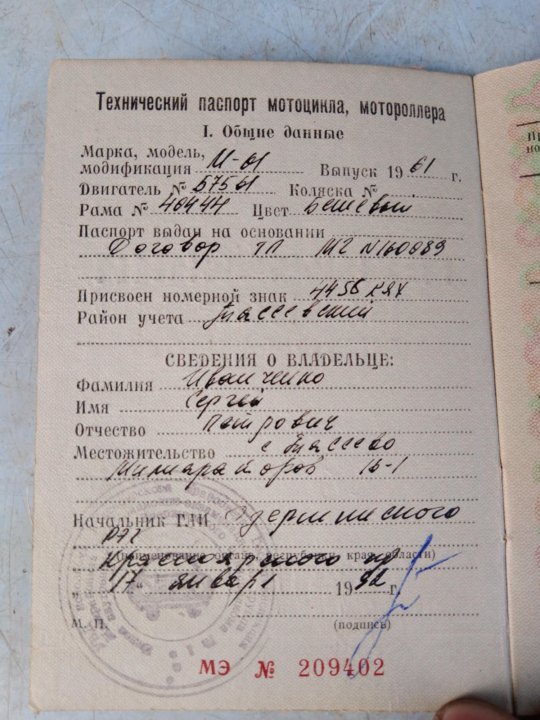 Технический паспорт мотоцикла, мотороллера
I. Общие данные
Марка, модель,
модификация М-61 Выпуск 1961 г.
Двигатель № 57561 Коляска №
Рама № 40444 Цвет Бежевый
Паспорт выдан на основании
Договор ТП МГ N160089
Присвоен номерной знак 4456 КЯХ
Район учета Тасеевский
СВЕДЕНИЯ О ВЛАДЕЛЬЦЕ:
Фамилия Иванченко
Имя Сергей
Отчество Петрович
Местожительство с Тасеево
Начальник ГАИ Дзержинского
(наименование города, республики, края, области)
Красноярского кр
"17" января 1992 г.
М. П. (подпись)
МЭ № 209402